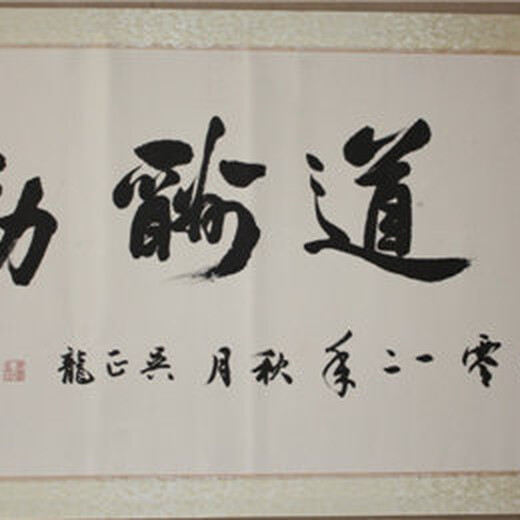 道酬
零一二年秋月吴正龍